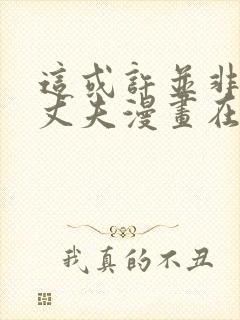 這或許並非
丈夫漫畫在
我真的不丑